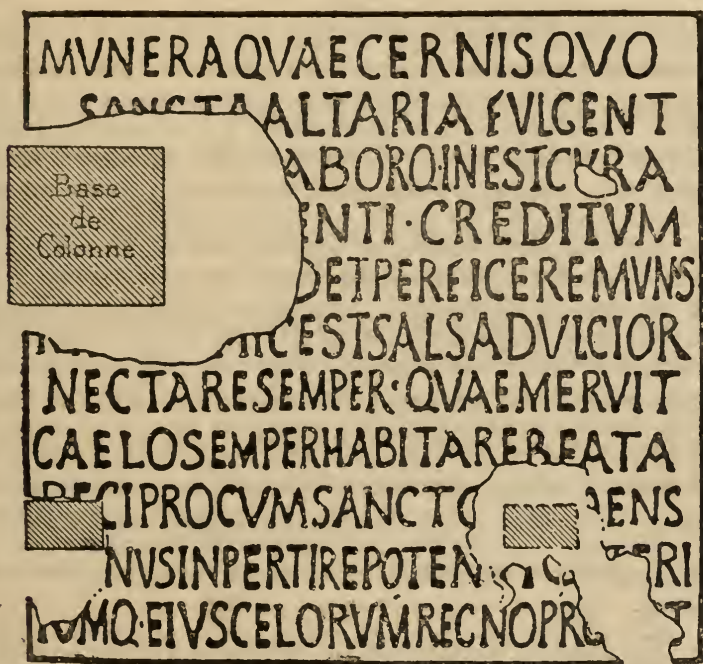 MVNERAQVAECERNISQVO
SANCTAALTARIA FVLGENT
ABORQ·INESTCVRA
Base
de
Colonne
ENTI·CREDITVM
DETPERFICEREMVNS
CESTSALSADVLCIOR
NECTARESEMPER·QVAEMERVIT
CAELOSEMPERHABITAREBEATA
RECIPROCVMSANCTO AENS
NVSINPERTIREPOTEN RI
NOMQ·EIVSCELORVMREGNOPR T